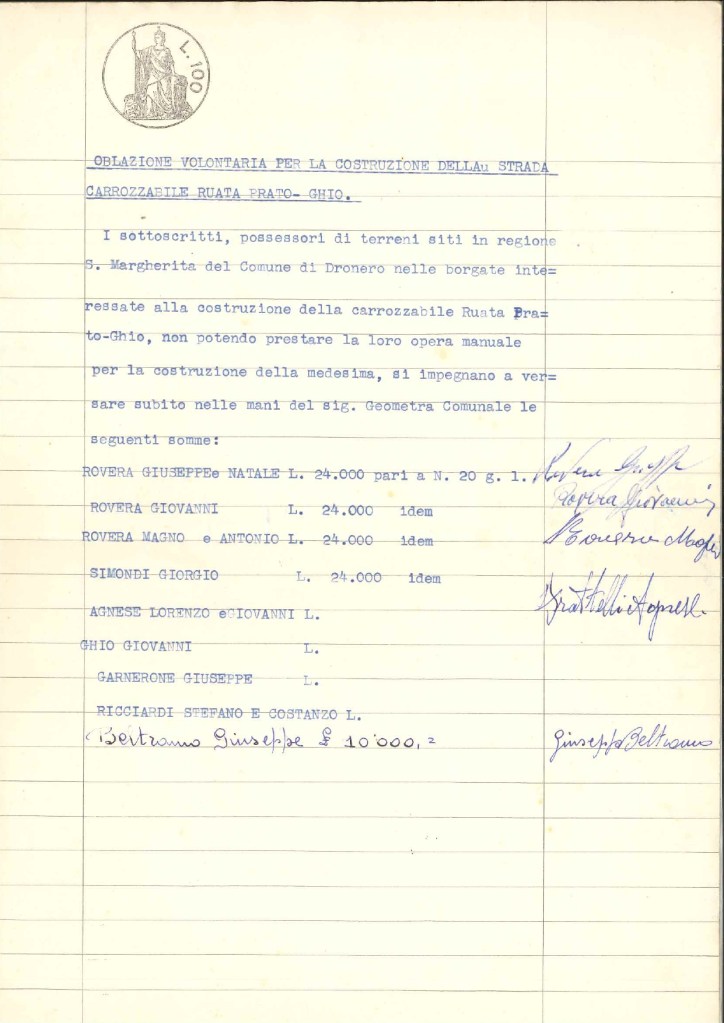 L. 100
OBLAZIONE VOLONTARIA PER LA COSTRUZIONE DELLAu STRADA
CARROZZABILE RUATA PRATO- GHIO.
I sottoscritti, possessori di terreni siti in regione
S. Margherita del Comune di Dronero nelle borgate inte=
ressate alla costruzione della carrozzabile Ruata Pra=
to-Ghio, non potendo prestare la loro opera manuale
per la costruzione della medesima, si impegnano a ver=
sare subito nelle mani del sig. Geometra Comunale le
seguenti somme:
ROVERA GIUSEPPEe NATALE L. 24.000 pari a N. 20 g. l. Rovera
ROVERA GIOVANNI L. 24.000 idem Rovera Giovanni
ROVERA MAGNO e ANTONIO L. 24.000 idem Rovera
SIMONDI GIORGIO L. 24.000 idem
AGNESE LORENZO eGIOVANNI L. Frattelli Agnese
GHIO GIOVANNI L.
GARNERONE GIUSEPPE L.
RICCIARDI STEFANO E COSTANZO L.
Beltramo Giuseppe £ 10'000,= Giuseppe Beltramo